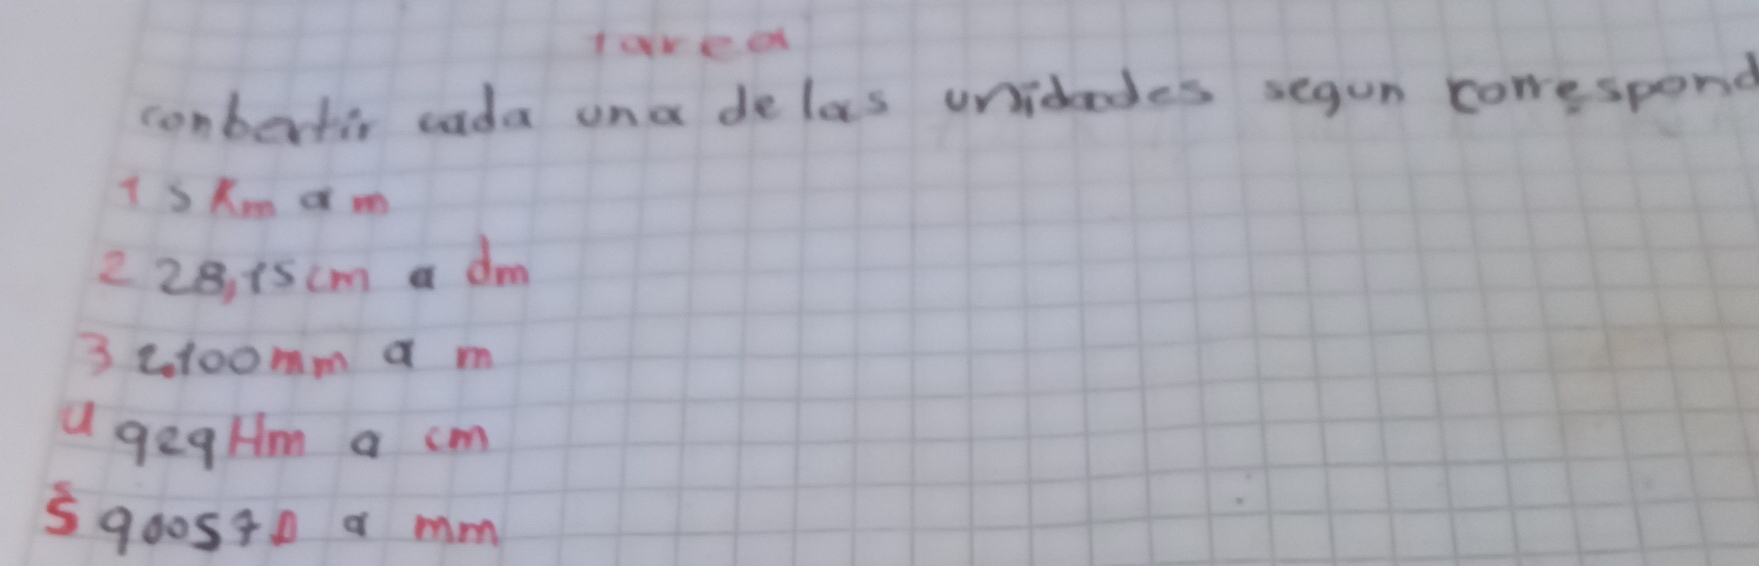 tarea
conbertir cada una de las unidades segun correspond
1 5 Km a m
2 28,15 cm a dm
3 2.100 mm a m
4 929 Hm a cm
5 90057 D a mm